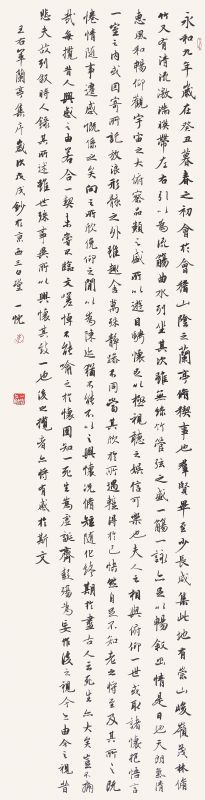 永和九年歲在癸丑暮春之初會於會稽山陰之蘭亭脩禊事也羣賢畢至少長咸集此地有崇山峻嶺茂林脩
竹又有清流激湍映帶左右引以為流觴曲水列坐其次雖無絲竹管弦之盛一觴一詠亦足以暢敘幽情是日也天朗氣清
惠風和暢仰觀宇宙之大俯察品類之盛所以遊目騁懷足以極視聽之娛信可樂也夫人之相與俯仰一世或取諸懷抱悟言
一室之內或因寄所託放浪形骸之外雖趣舍萬殊靜躁不同當其欣於所遇暫得於己怏然自足不知老之將至及其所之既
惓情隨事遷感慨係之矣向之所欣俛仰之間以為陳迹猶不能不以之興懷況脩短隨化終期於盡古人云死生亦大矣豈不痛
哉每攬昔人興感之由若合一契未嘗不臨文嗟悼不能喻之於懷固知一死生為虛誕齊彭殤為妄作後之視今亦由今之視昔
悲夫故列敘時人錄其所述雖世殊事異所以興懷其致一也後之攬者亦將有感於斯文
王右軍蘭亭集序歲次戊戌鈔於京西三口堂一